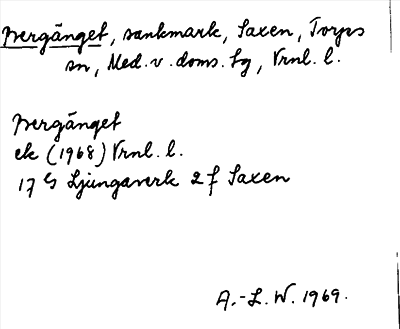 Svergänget, sankmark, Saxen, Torps
sn, Med. v. doms. tg, Vrnl. l.
Svergänget
ek (1968) Vrnl. l.
17 G Ljungaverk 2 f Saxen
A.-L. W. 1969.